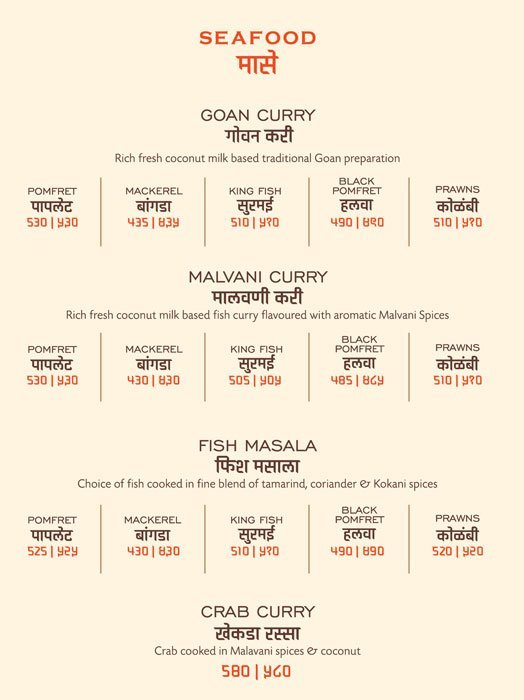 SEAFOOD
मासे
GOAN CURRY
गोवन करी
Rich fresh coconut milk based traditional Goan preparation
POMFRET
पापलेट
530 | ५३०
MACKEREL
बांगडा
435 | ४३५
KING FISH
सुरमई
510 | ५१०
BLACK
POMFRET
हलवा
490 | ४९०
PRAWNS
कोळंबी
510 | ५१०
MALVANI CURRY
मालवणी करी
Rich fresh coconut milk based fish curry flavoured with aromatic Malvani Spices
POMFRET
पापलेट
530 | ५३०
MACKEREL
बांगडा
430 | ४३०
KING FISH
सुरमई
505 | ५०५
BLACK
POMFRET
हलवा
485 | ४८५
PRAWNS
कोळंबी
510 | ५१०
FISH MASALA
फिश मसाला
Choice of fish cooked in fine blend of tamarind, coriander & Kokani spices
POMFRET
पापलेट
525 | ५२५
MACKEREL
बांगडा
430 | ४३०
KING FISH
सुरमई
510 | ५१०
BLACK
POMFRET
हलवा
490 | ४९०
PRAWNS
कोळंबी
520 | ५२०
CRAB CURRY
खेकडा रस्सा
Crab cooked in Malavani spices & coconut
580 | ५८०